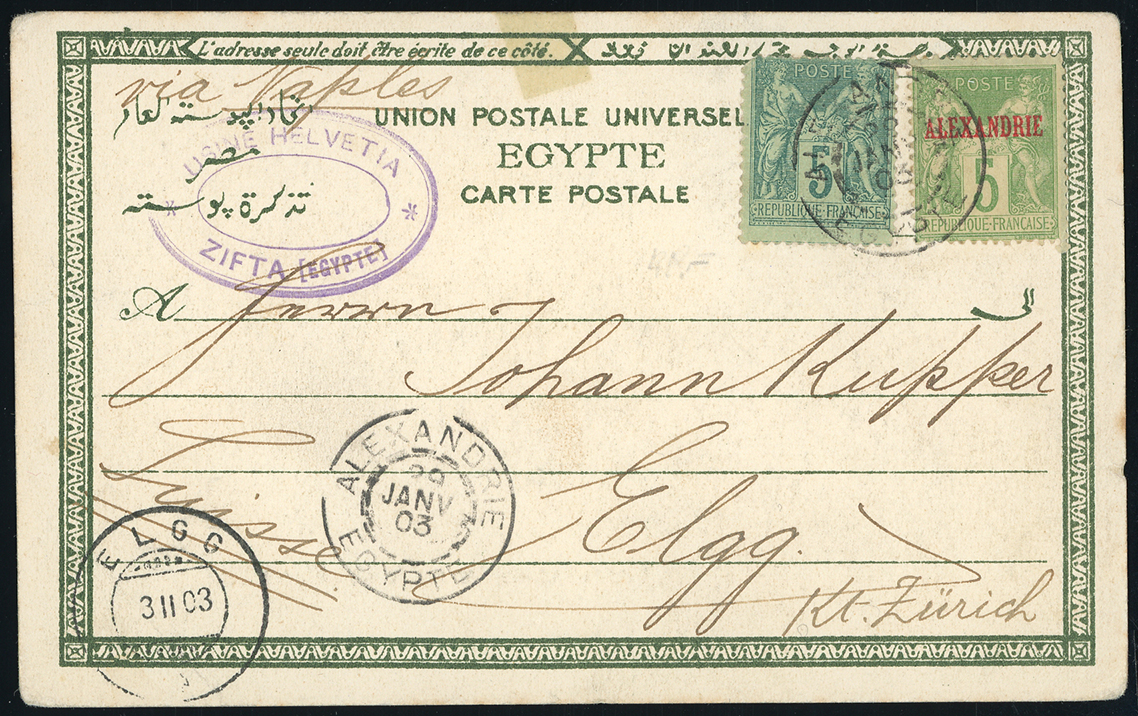 L'adresse seule doit être écrite de ce côté.
via Naples
UNION POSTALE UNIVERSEL
EGYPTE
CARTE POSTALE
مصر
تذكرة پوسته
USINE HELVETIA
* *
ZIFTA [EGYPTE]
POSTE
5
REPUBLIQUE FRANÇAISE
POSTE
ALEXANDRIE
5
REPUBLIQUE FRANÇAISE
JANV
03
EGYPTE
A Herrn الى
Johann Kupper
Suisse Elgg.
Kt. Zürich
ALEXANDRIE
29
JANV
03
EGYPTE
ELGG
3 II 03